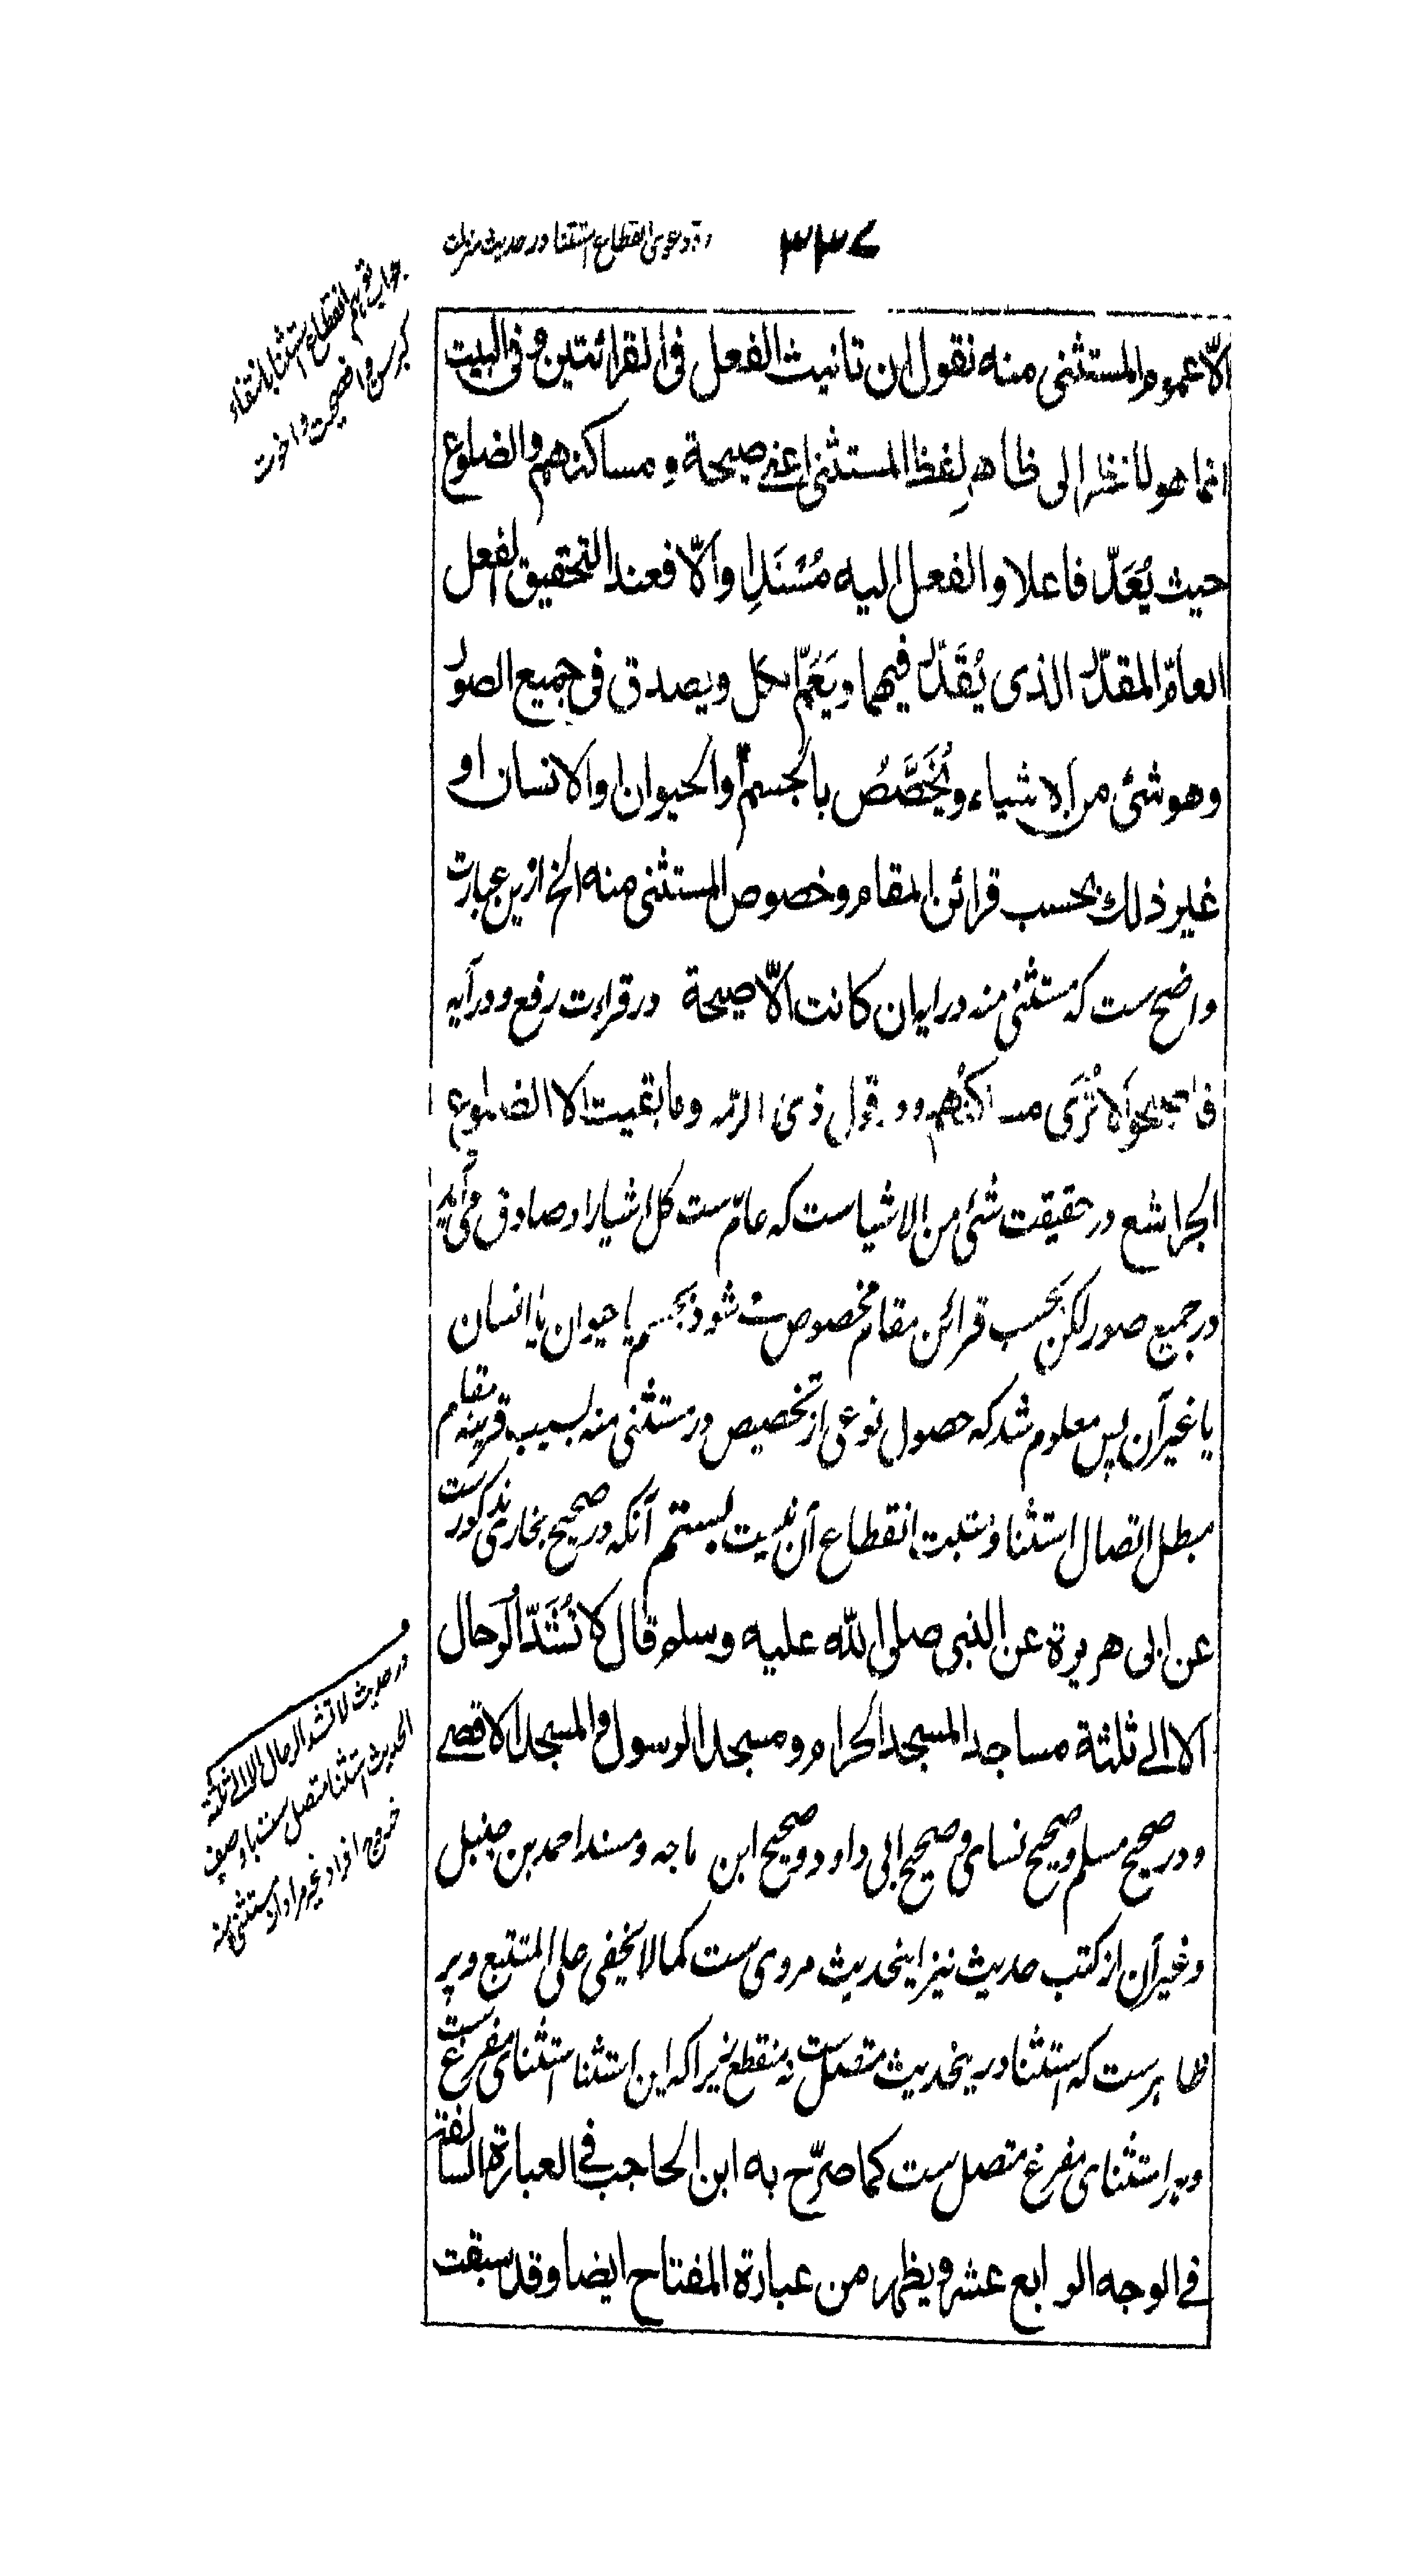 ۳۳۷
رد دعوی انقطاع استثنا در حدیث منزلت
جواب توهم انقطاع استثنا بانتفاء
الّا عموم المستثنى منه نقول ان تانيث الفعل فى القرائتين و فى البيت
انما هو لانظر الى ظاهر لفظ المستثنى اعنى صيحة و مساكنهم والضلوع
حيث يُعَدّ فاعلا والفعل اليه مُسْنَدا والّا فعند التحقيق الفعل
العامّ المقدّر الذى يُقَدّر فيهما ويَعُمّ الكل ويصدق فى جميع الصور
وهو شئ من الاشياء ويُخَصَّصُ بالجسم أو الحيوان او الانسان او
غير ذلك بحسب قرائن المقام وخصوص المستثنى منه الخ ازين عبارت
واضح ست که مستثنی منه در ایه ان كانت الّا صيحة در قراءت رفع و در آیه
فاصبحوا لا تُرَى مساكنُهم و در قول ذی الرمه وما بقيت الا الضلوع
الجراشع در حقیقت شئ من الاشیاست که عامّ ست کل اشیا را و صادق می آید
در جمیع صور لکن بحسب قرائن مقام مخصوص می شود بجسم یا حیوان یا انسان
یا غیر آن پس معلوم شد که حصول نوعی از تخصیص در مستثنی منه بسبب قرینه مقام
مبطل اتصال استثنا و مثبت انقطاع آن نیست بستم آنکه در صحیح بخاری مذکورست
عن ابى هريرة عن النبى صلى الله عليه وسلم قال لا تُشَدّ الرحال
الا الى ثلثة مساجد المسجد الحرام ومسجد الرسول والمسجد الاقصى
و در صحیح مسلم و صحیح نسای و صحیح ابی داود و صحیح ابن ماجه و مسند احمد بن حنبل
و غیر آن از کتب حدیث نیز اینحدیث مروی ست کما لا یخفی علی المتتبع و پر
ظاهرست که استثنا درینحدیث متصل ست نه منقطع زیرا که این استثنا استثنای مفرغ ست
و هر استثنای مفرغ متصل ست کما صرّح به ابن الحاجب فی العبارة السالفة
فى الوجه الرابع عشر ويظهر من عبارة المفتاح ايضا وقد سبقت
در حدیث لا تشد الرحال الا الی ثلثة
الحدیث استثنا متصل ست با وصف
خروج افراد غیر مراد از مستثنی منه